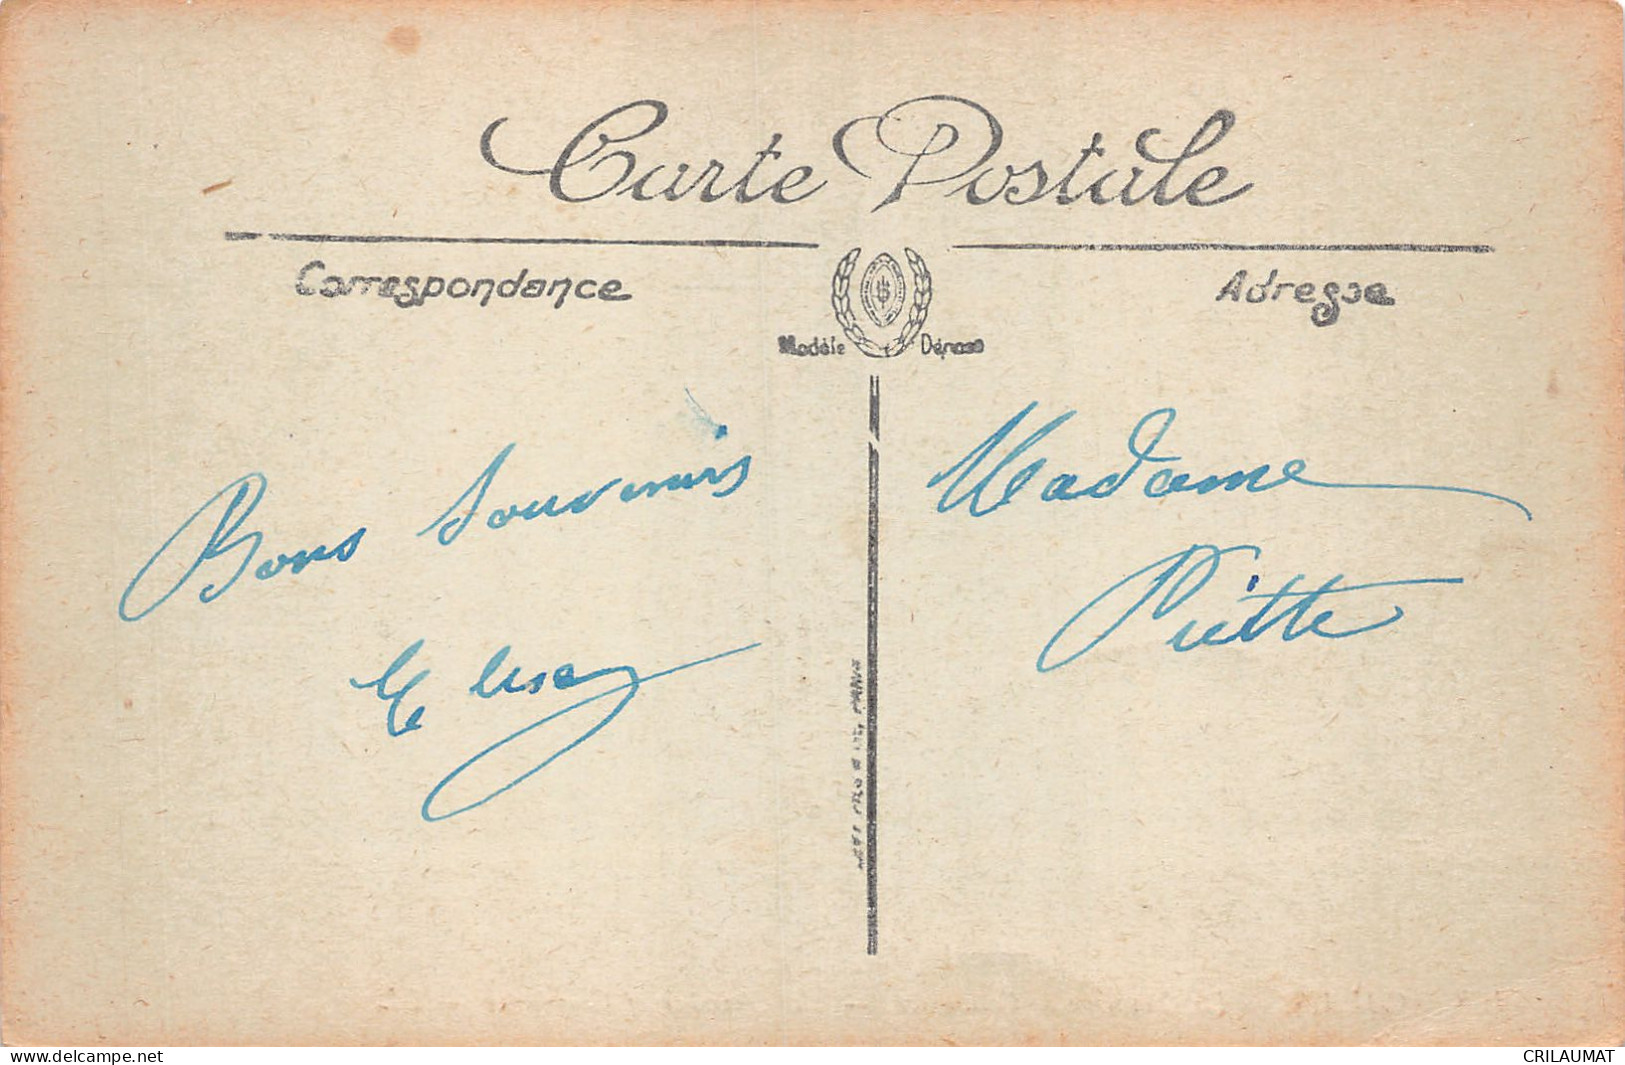 Carte Postale
Correspondance
Adresse
Modèle Déposé
Bons Souvenirs
Madame
Piette
PARIS
www.delcampe.net
CRILAUMAT